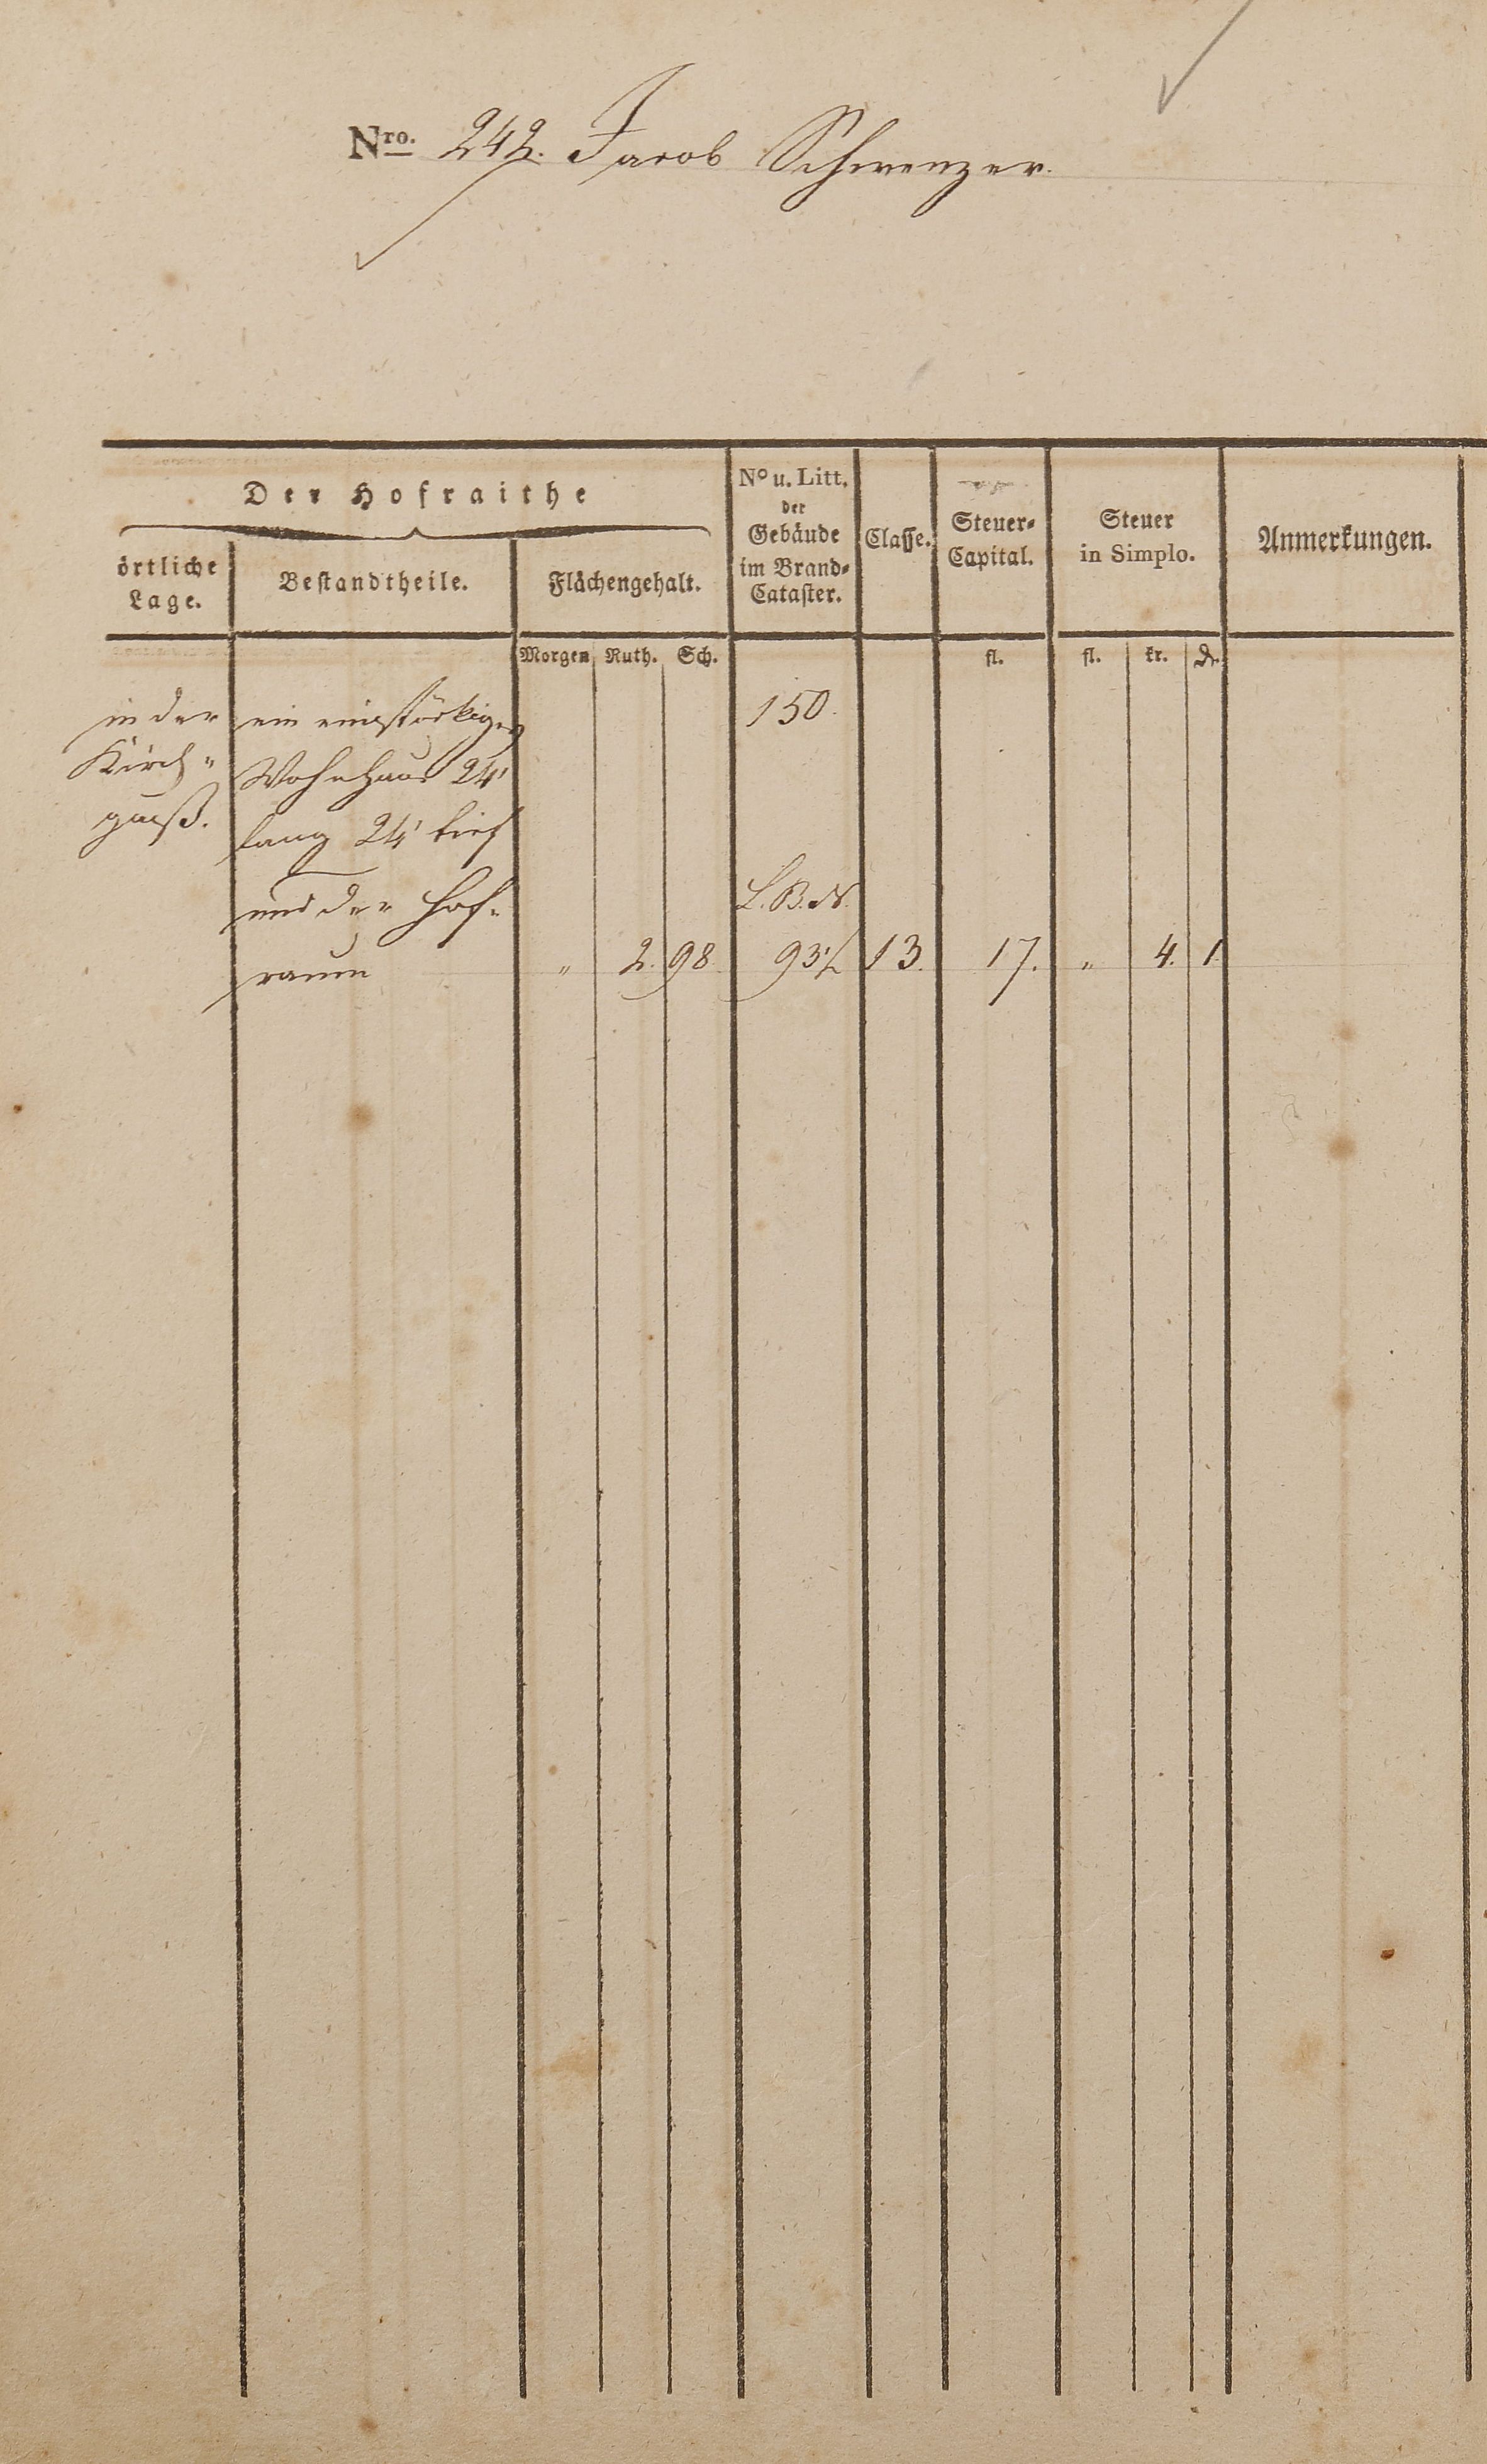 Nro. 242. Jacob Schwenzer.
Der Hofraithe
örtliche Lage.
Bestandtheile.
Flächengehalt.
No u. Litt. der Gebäude im Brand-Cataster.
Classe.
Steuer-Capital.
Steuer in Simplo.
Anmerkungen.
Morgen Ruth. Sch. fl. fl. kr. d.
in der ein einstöckiges 150.
Kirch- Wohnhaus 24'
gaß. lang 24' tief
und der Hof- L. B. N.
raum " 2. 98. 13. 17. " 4. 1.